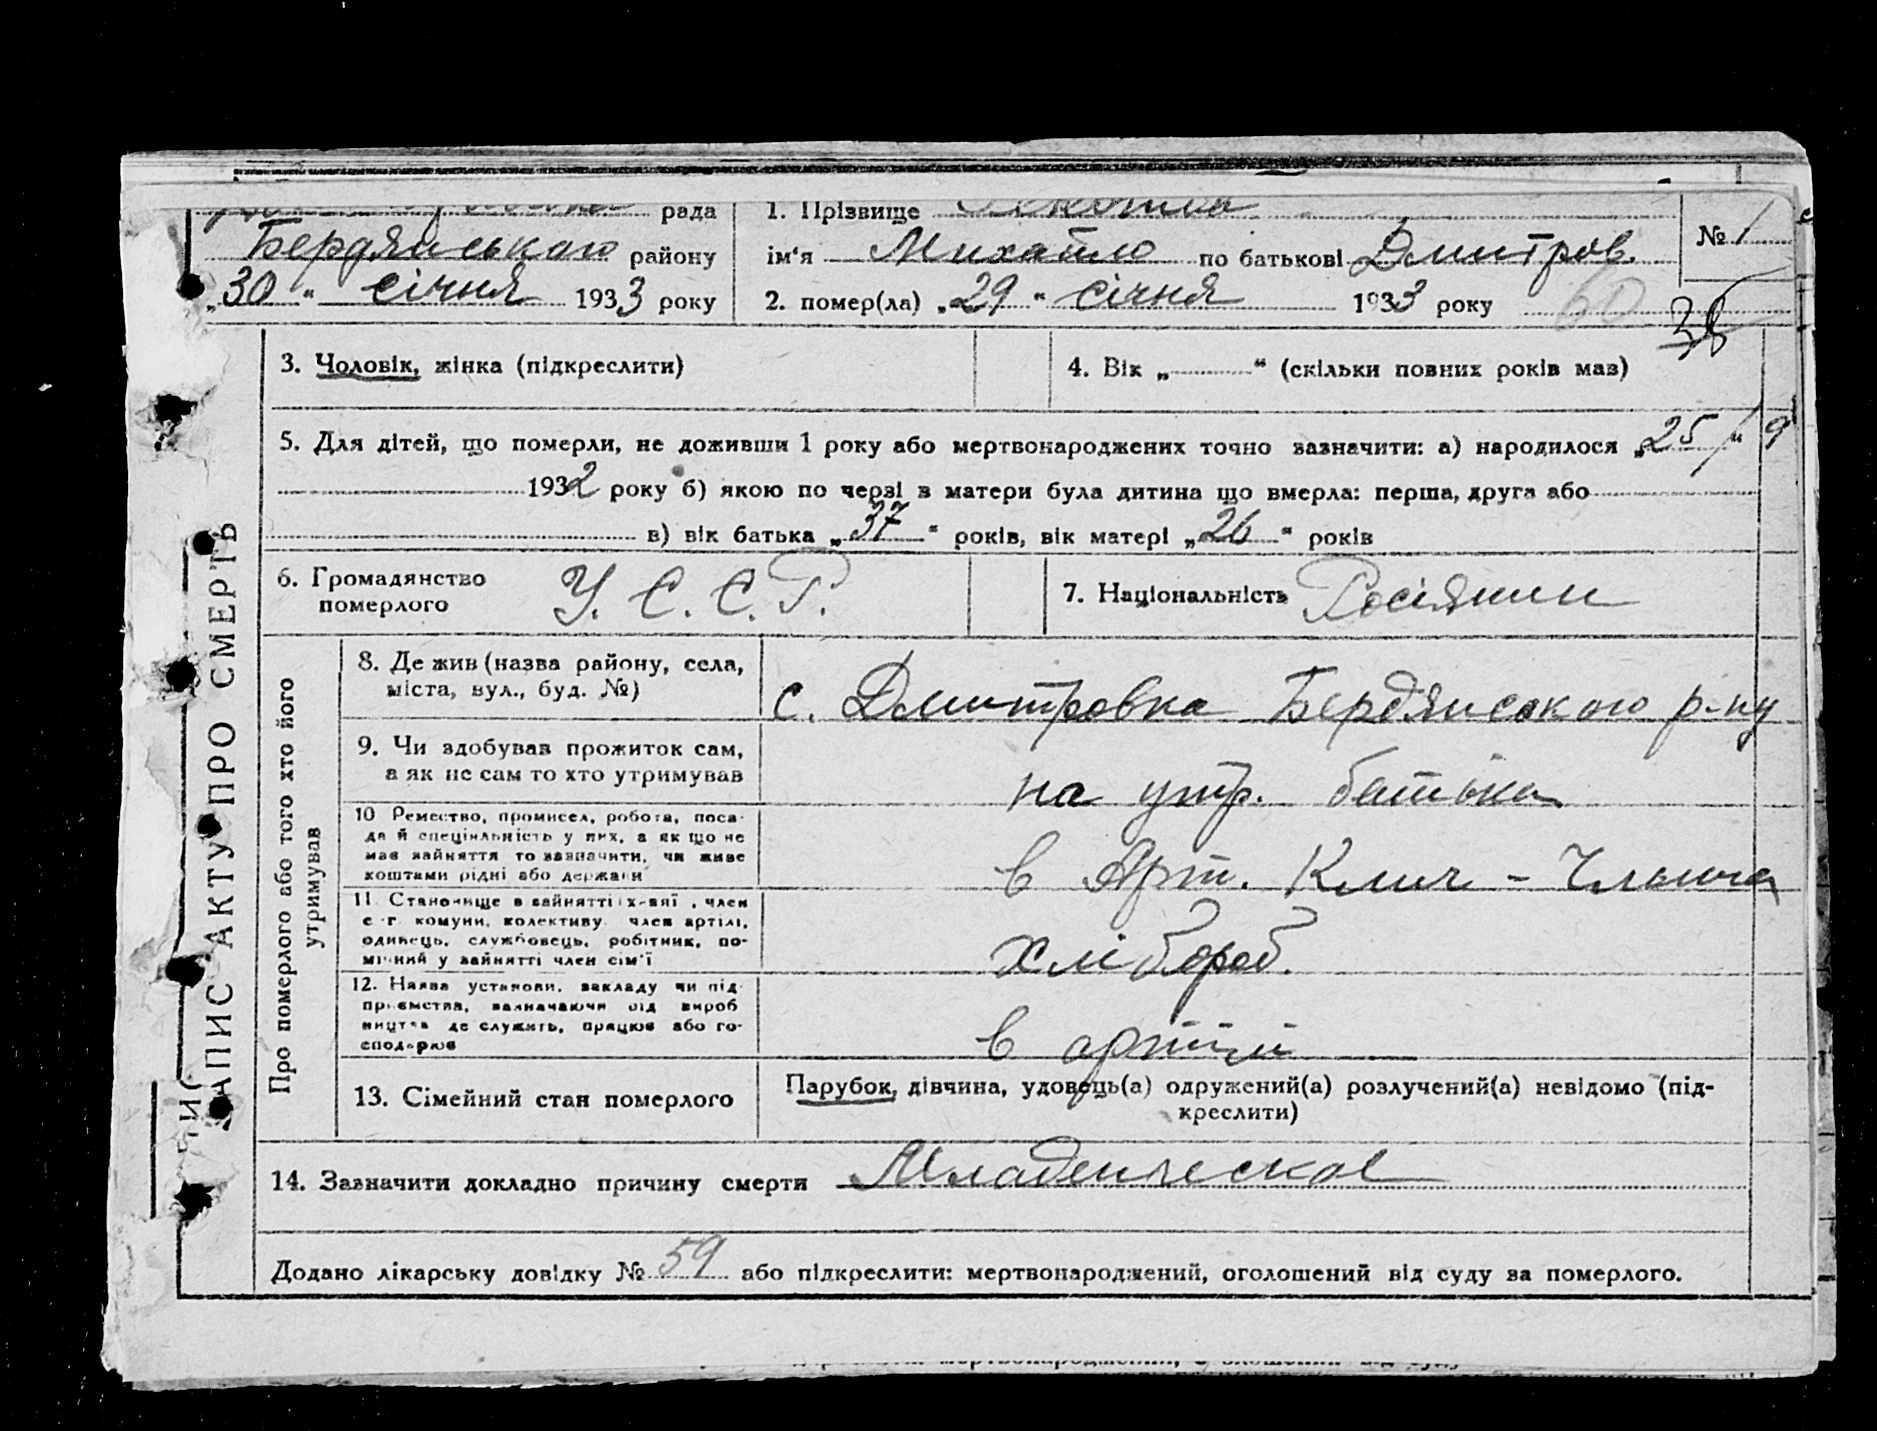 рада
1. Прізвище
Бердянського району
ім‘я Михайло по батькові Дмитров.
№ 1
„30“ січня 1933 року
2. помер(ла) „29“ січня 1933 року 60
38
3. Чоловік, жінка (підкреслити)
4. Вік „ “ (скільки повних років мав)
5. Для дітей, що померли, не доживши 1 року або мертвонароджених точно зазначити: а) народилося „25/“ 9
1932 року б) якою по черзі в матери була дитина що вмерла: перша, друга або
в) вік батька „37“ років, вік матері „26“ років
6. Громадянство
померлого
У. С. С. Р.
7. Національність Росіянин
ЗАПИС АКТУ ПРО СМЕРТЬ
Про померлого або того хто його
утримував
8. Де жив (назва району, села,
міста, вул., буд. №)
с. Дмитровка Бердянського р-ну
9. Чи здобував прожиток сам,
а як не сам то хто утримував
на утр. батька
10 Ремество, промисел, робота, поса-
да й спеціяльність у них, а як що не
мав зайняття то зазначити, чи живе
коштами рідні або держави
в Арт. Клич - Ілліча
11. Становище в зайнятті: х-вяї, член
с.-г. комуни, колективу, член артілі,
одинець, службовець, робітник, по-
мічний у зайнятті член сім'ї
хлібороб.
12. Назва установи, закладу чи під-
приємства, зазначаючи від вироб
ництва де служить, працює або го-
сподарює
в артілі
13. Сімейний стан померлого
Парубок, дівчина, удовець(а) одружений(а) розлучений(а) невідомо (під-
креслити)
14. Зазначити докладно причину смерти Младенческое
Додано лікарську довідку № 59 або підкреслити: мертвонароджений, оголошений від суду за померлого.